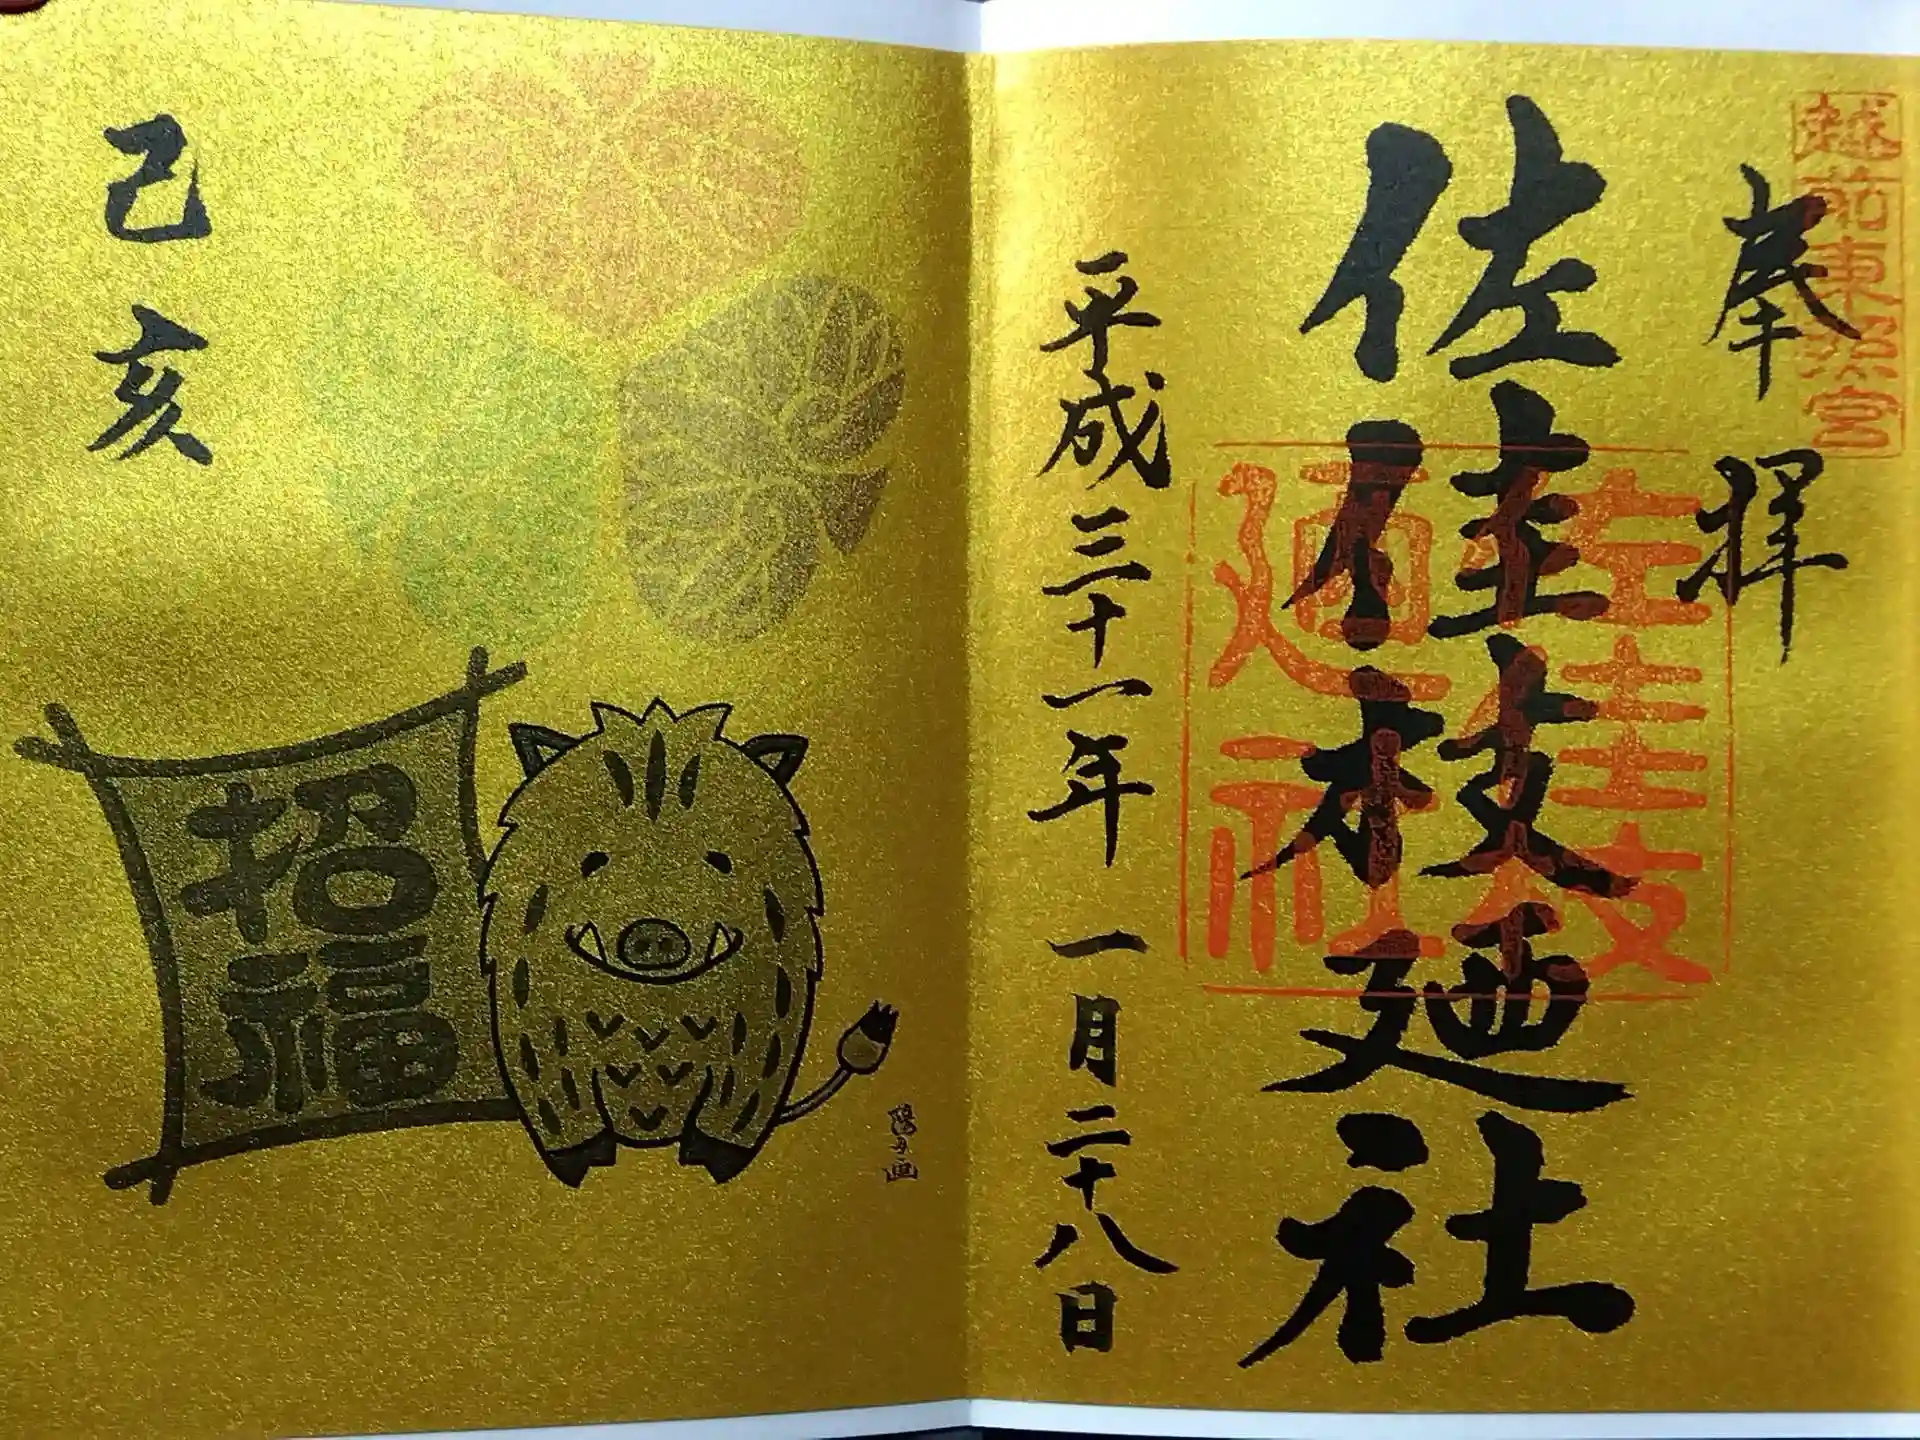 越前東照宮
奉拝
佐佳枝廼社
佐佳枝
廼社
平成三十一年一月二十八日
己亥
招福
画